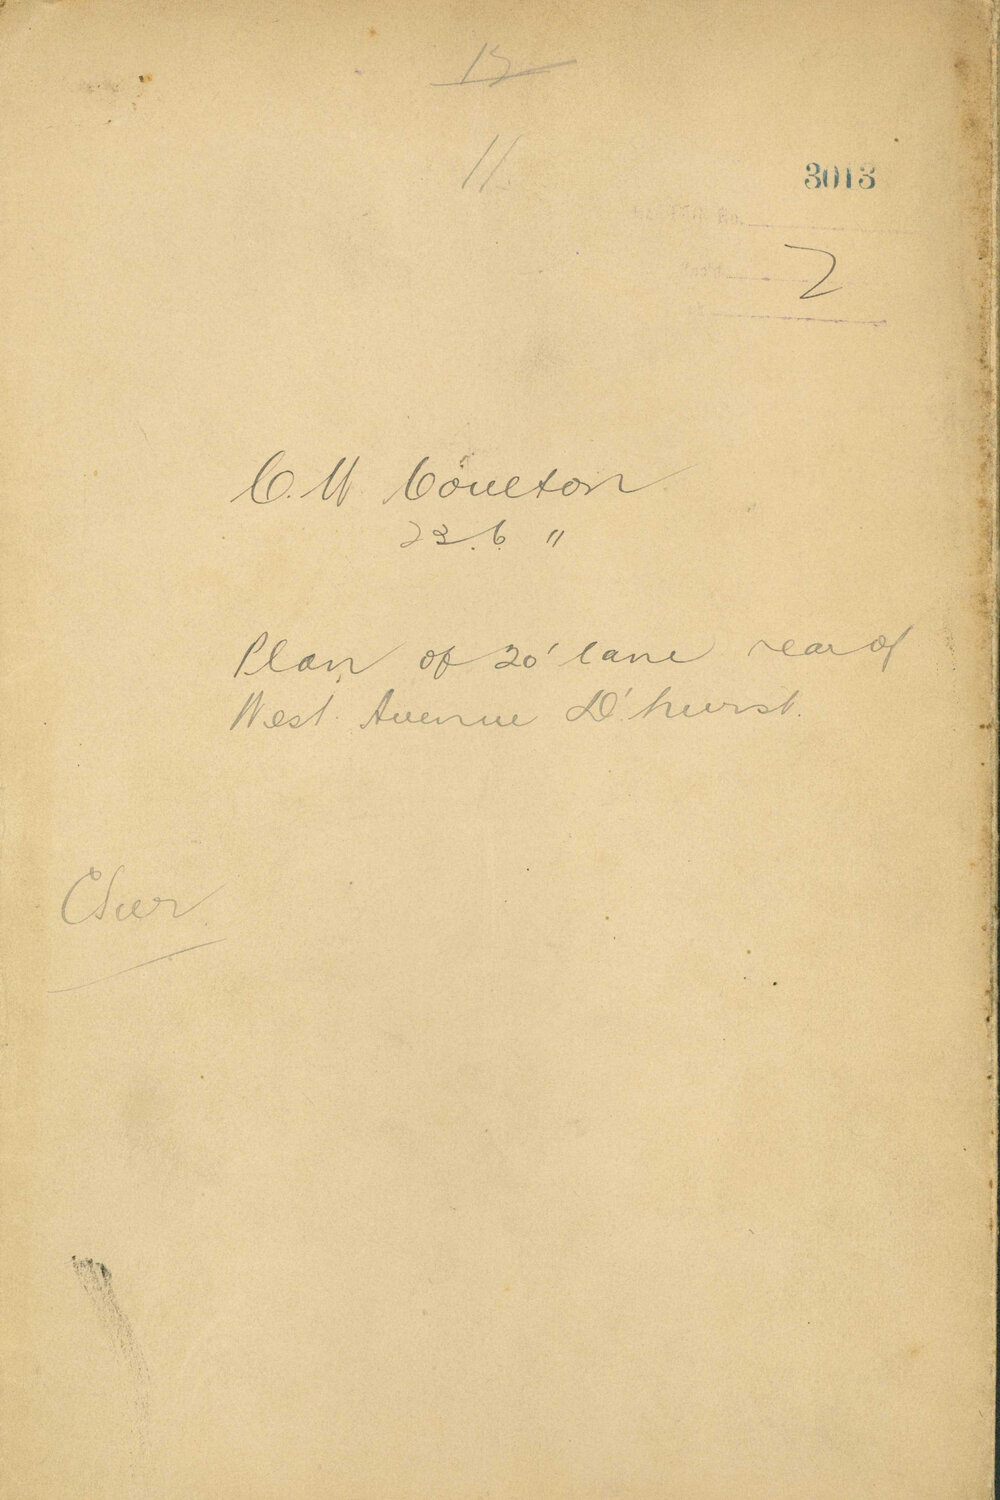 15
11
3013
No.
2
C. W Coulton
23.6 "
Plan of 20' lane rear of
West Avenue D'hurst.